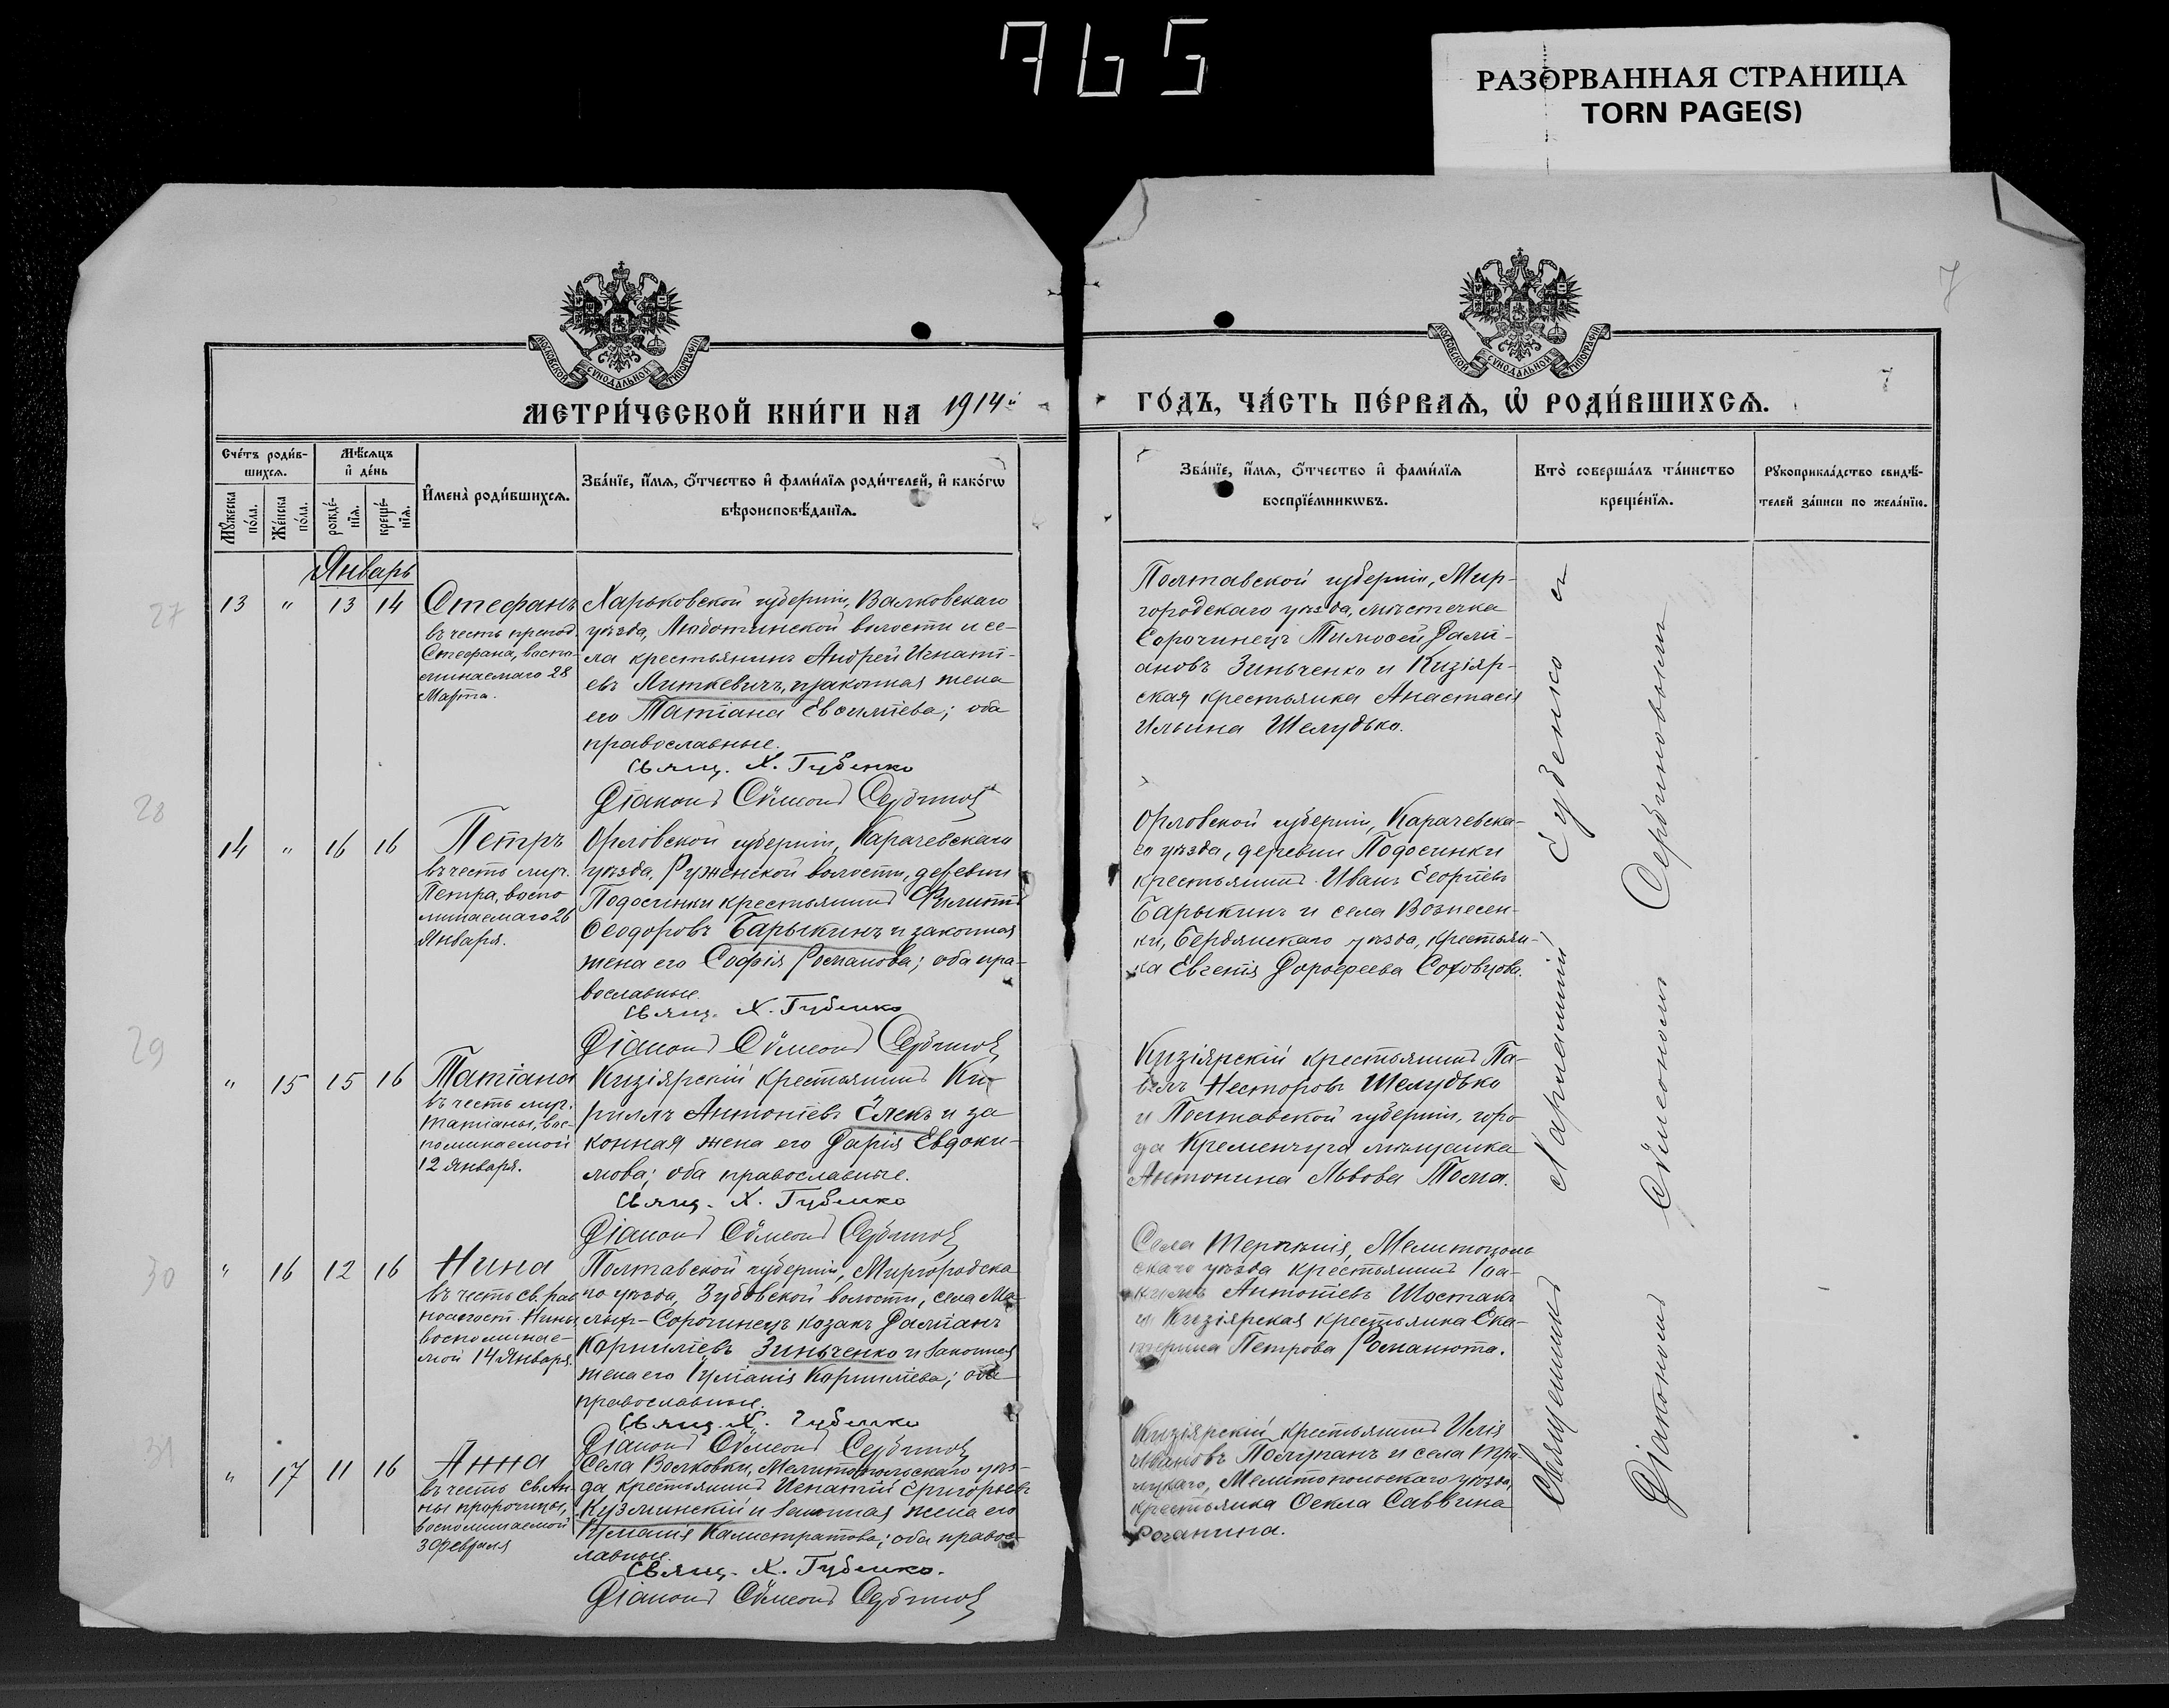 765
РАЗОРВАННАЯ СТРАНИЦА
TORN PAGE(S)
7
7
МОСКОВСКОЙ СУНОДАЛЬНОЙ ТИПОГРАФІИ
МОСКОВСКОЙ СУНОДАЛЬНОЙ ТИПОГРАФІИ
МЕТРИ́ЧЕСКОЙ КНИ́ГИ НА 1914й
ГО́ДЪ, ЧА́СТЬ ПЕ́РВАѦ, Ѡ҆ РОДИ́ВШИХСѦ.
Сче́тъ роди́в-
шихсѧ.
Мꙋ́жеска по́ла.
Же́нска по́ла.
Мѣ́сѧцъ
и҆ де́нь
рожде́-
нїѧ.
креще́-
нїѧ.
И҆мена̀ роди́вшихсѧ.
Зва́нїе, и҆́мѧ, ѻ҆́тчество и҆ фами́лїѧ роди́телей, и҆ како́гѡ
вѣроисповѣ́данїѧ.
Зва́нїе, и҆́мѧ, ѻ҆́тчество и҆ фами́лїѧ
воспрїе́мникѡвъ.
Кто̀ соверша́лъ та́инство
креще́нїѧ.
Рꙋкоприкла́дство свидѣ́-
телей за́писи по жела́нїю.
Январь
27
13 " 13 14
Стефанъ
въ честь препод.
Стефана, воспо-
минаемаго 28
Марта.
Харьковской губерніи, Валковскаго
уѣзда, Люботинской волости и се-
ла крестьянинъ Андрей Игнатi-
евъ Литкевичъ, и законная жена
его Татіана Евсиміева; оба
православные.
Свящ. Х. Губенко
Діаконъ Сѵмеонъ Сербиновъ
Полтавской губерніи, Мир-
городскаго уѣзда, мѣстечка
Сорочинецъ Тимоѳей Даміановъ
Зиньченко и Кизіяр-
ская крестьянка Анастасія
Ильина Шелудько.
28
14 " 16 16
Петръ
въ честь муч.
Петра, воспо
минаемаго 26
Января.
Орловской губерніи, Карачевскаго
уѣзда, Руженской волости, деревни
Подосинки крестьянинъ Филиппъ
Ѳеодоровъ Барыкинъ и законная
жена его Софія Романова; оба пра-
вославные.
Свящ. Х. Губенко
Діаконъ Сѵмеонъ Сербиновъ
Орловской губерніи, Карачевска-
го уѣзда, деревни Подосинки
крестьянинъ Иванъ Георгіевъ
Барыкинъ и села Вознесен-
ки, Бердянскаго уѣзда, крестьян-
ка Евгенія Дороѳеева
29
" 15 15 16
Татіана
въ честь муч.
Татіаны, вос-
поминаемой
12 Января.
Кизіярскій крестьянинъ Ки-
риллъ Антоніевъ Елекъ и за
конная жена его Дарія Евдоки-
мова; оба православные.
Свящ. Х. Губенко
Діаконъ Сѵмеонъ Сербиновъ
Кизіярскій крестьянинъ Па-
велъ Несторовъ Шелудько
и Полтавской губерніи, горо
да Кременчуга мѣщанка
Антонина Львова
30
" 16 12 16
Нина
въ честь св. рав
ноапост. Нины
воспоминае-
мой 14 Января.
Полтавской губерніи, Миргородска
го уѣзда, Зубовской волости, села Ма-
лыхъ-Сорочинецъ козакъ Даміанъ
Корниліевъ Зиньченко и законная
жена его Іуліанія Корниліева; оба
православные.
Свящ. Х. Губенко
Діаконъ Сѵмеонъ Сербиновъ
Села Терпѣнія, Мелитополь
скаго уѣзда крестьянинъ Іоа-
кимъ Антоніевъ Шостакъ
и Кизіярская крестьянка Ека-
терина Петрова Романюта.
31
" 17 11 16
Анна
въ честь св. Ан-
ны пророчицы,
воспоминаемой
3 Февраля
Села Волковки, Мелитопольскаго уѣз-
да крестьянинъ Игнатій Григорьевъ
Кузьминскій и законная жена его
Іуліанія Калистратова; оба правос-
лавные.
Свящ. Х. Губенко.
Діаконъ Сѵмеонъ Сербиновъ
Кизіярскій крестьянинъ Илія
Ивановъ Полупанъ и села Тро-
ицкаго, Мелитопольскаго уѣзда,
крестьянка Ѳекла Саввина
Роганина.
Священникъ Харлампій Губенко съ
Діакономъ Сѵмеономъ Сербиновымъ